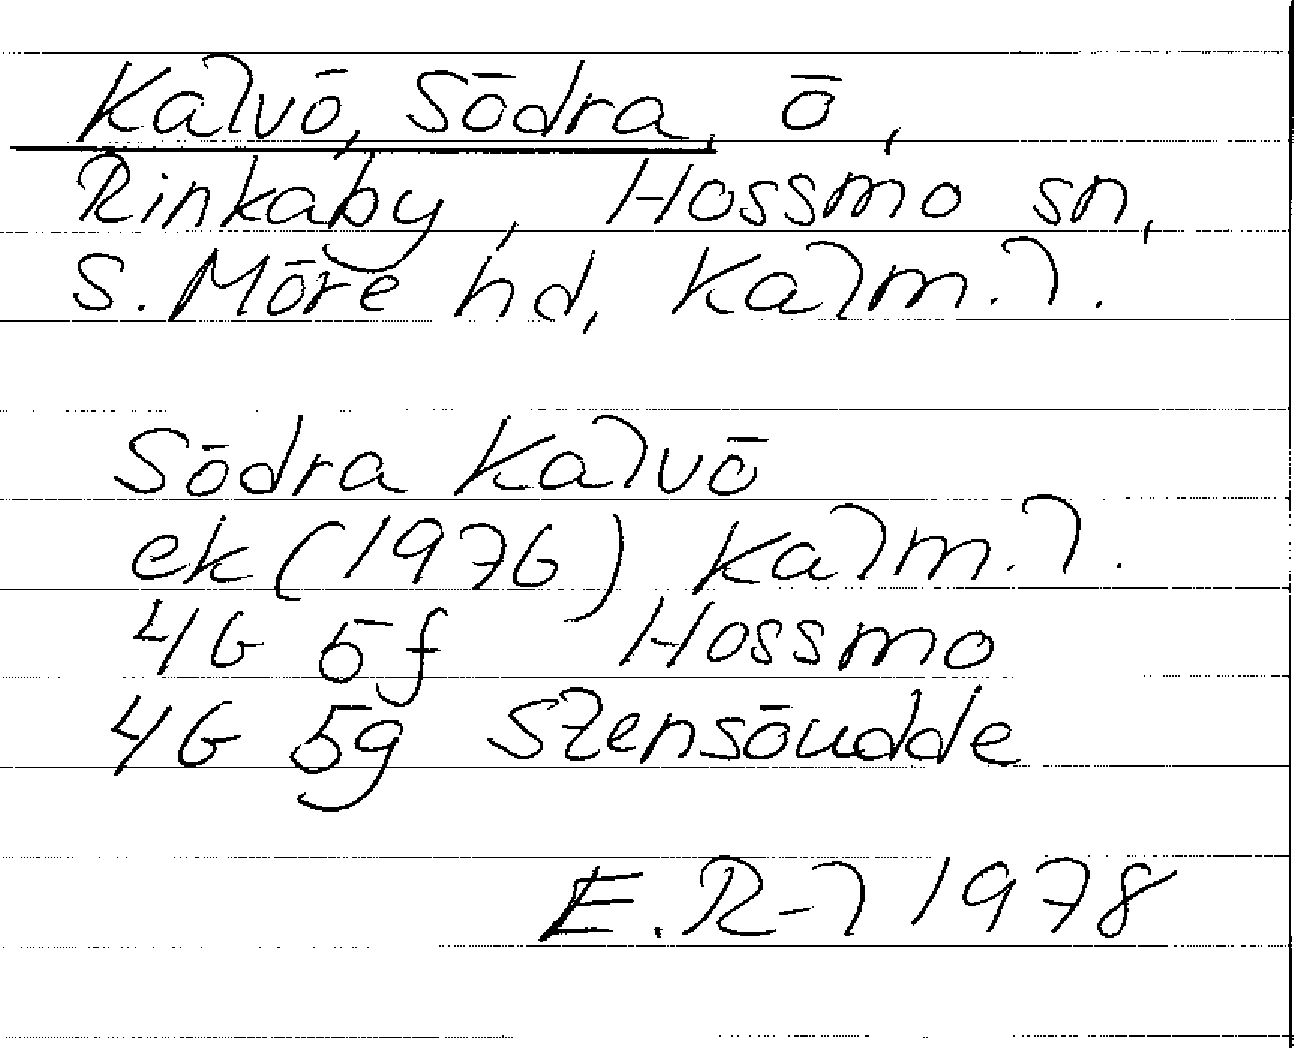 Kalvö, Södra, ö,
Rinkaby, Hossmo sn,
S. Möre hd, Kalm. l.
Södra Kalvö
ek (1976) Kalm. l.
4G 5f Hossmo
4G 5g Stensöudde
E. R-l 1978